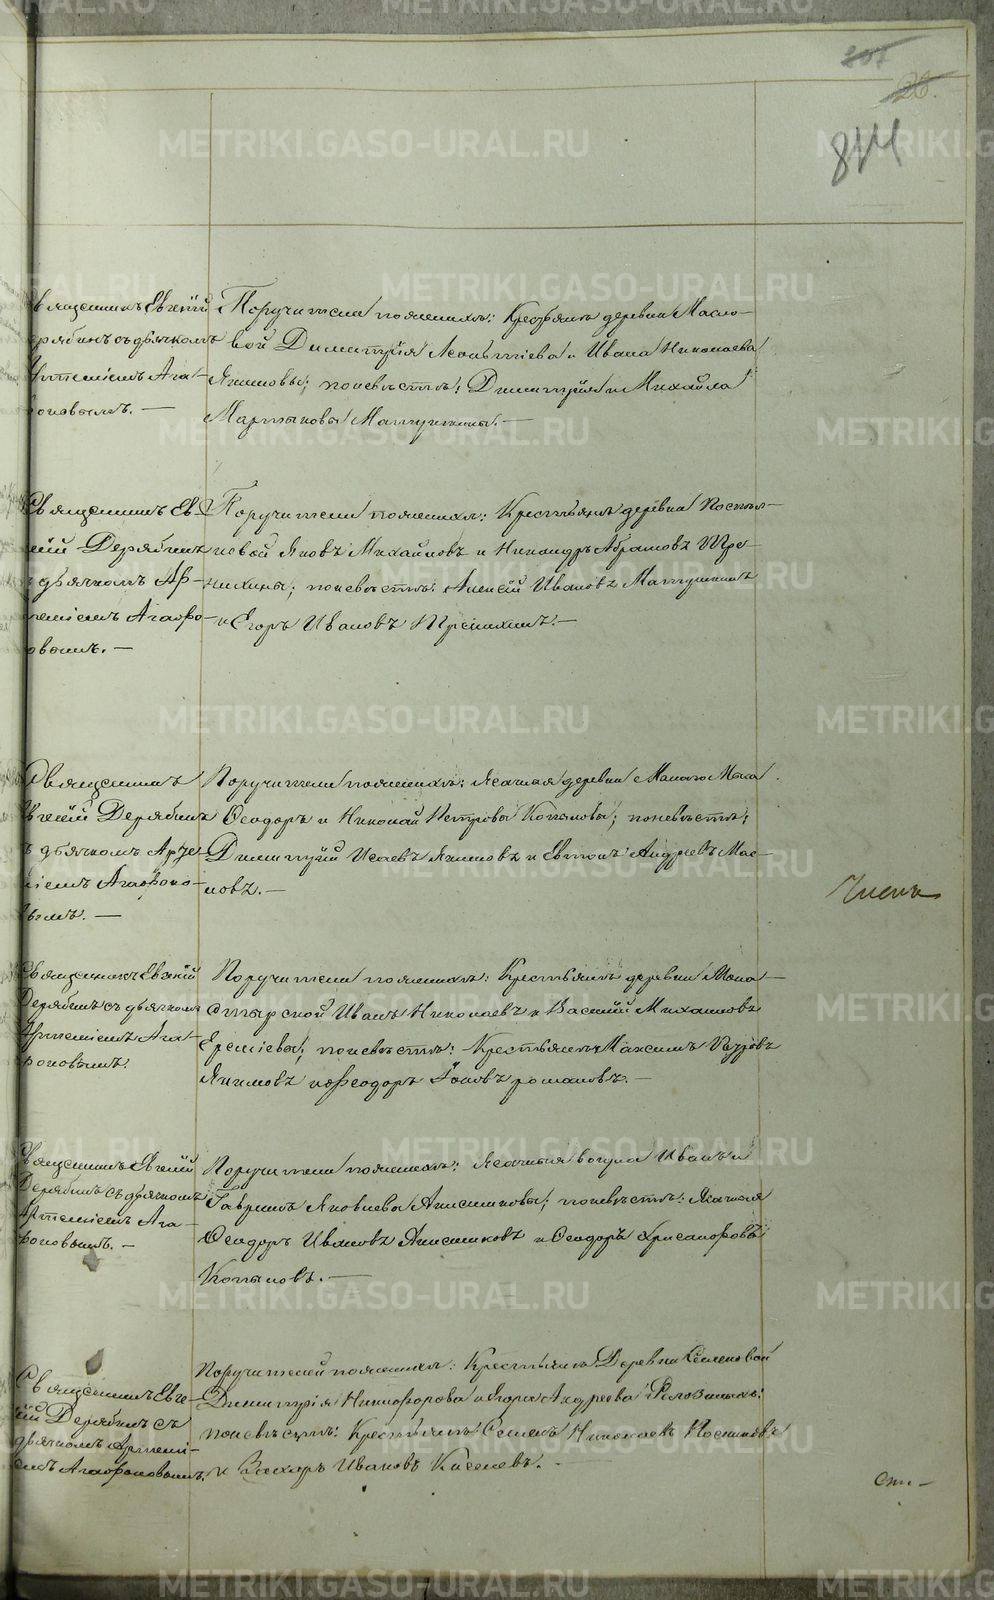 207
26.
844
Священникъ Евгеній
Дерябинъ съ дьячкомъ
Артеміемъ Ага-
фоновымъ. —
Поручители по женихѣ: Крестьянъ деревни Масло-
вой Димитрія Леонтіева и Ивана Николаева
Якимовы; по невѣстѣ: Димитрія и Михаила
Мартыновы Матушкины. —
Священникъ Ев-
геній Дерябинъ
съ дьячкомъ Ар-
теміемъ Агафо-
новымъ. —
Поручители по женихѣ: Крестьяне деревни
Яковъ Михайловъ и Никандръ Абрамовъ Пре-
нихины; по невѣстѣ: Алексѣй Ивановъ Матушкинъ
и Егоръ Ивановъ
Священникъ
Евгеній Дерябинъ
съ дьячкомъ Арте-
міемъ Агафоно-
вымъ. —
Поручители по женихѣ: Ясачныя деревни
Ѳеодоръ и Николай Петровы Копыловы; по невѣстѣ:
Димитрій Исаевъ Якимовъ и Евтропъ Андреевъ Мас-
ловъ. —
Членъ
Священникъ Евгеній
Дерябинъ съ дьячкомъ
Артеміемъ Ага-
фоновымъ.
Поручители по женихѣ: Крестьянъ деревни Мона-
стырской Иванъ Николаевъ и Василій Михаиловъ
Еремѣевы; по невѣстѣ: Крестьянъ Максимъ
Якимовъ и Ѳеодоръ Романовъ. —
Священникъ Евгеній
Дерябинъ съ дьячкомъ
Артеміемъ Ага-
фоновымъ. —
Поручители по женихѣ: Ясачныя вогула Иванъ и
Гаврилъ Яковлевы Анисимковы; по невѣстѣ: Ясачныя
Ѳеодоръ Ивановъ Анисимковъ и Ѳеодоръ Хрисанфовъ
Копыловъ. —
Священникъ Евге-
ній Дерябинъ съ
дьячкомъ Артемі-
емъ Агафоновымъ.
Поручители по женихѣ: Крестьянъ Деревни
Димитрія Никифорова и Егора Андреева
по невѣстѣ: Крестьянъ Семенъ Николаевъ Постниковъ
и Захаръ Ивановъ Киселевъ. —
METRIKI.GASO-URAL.RU